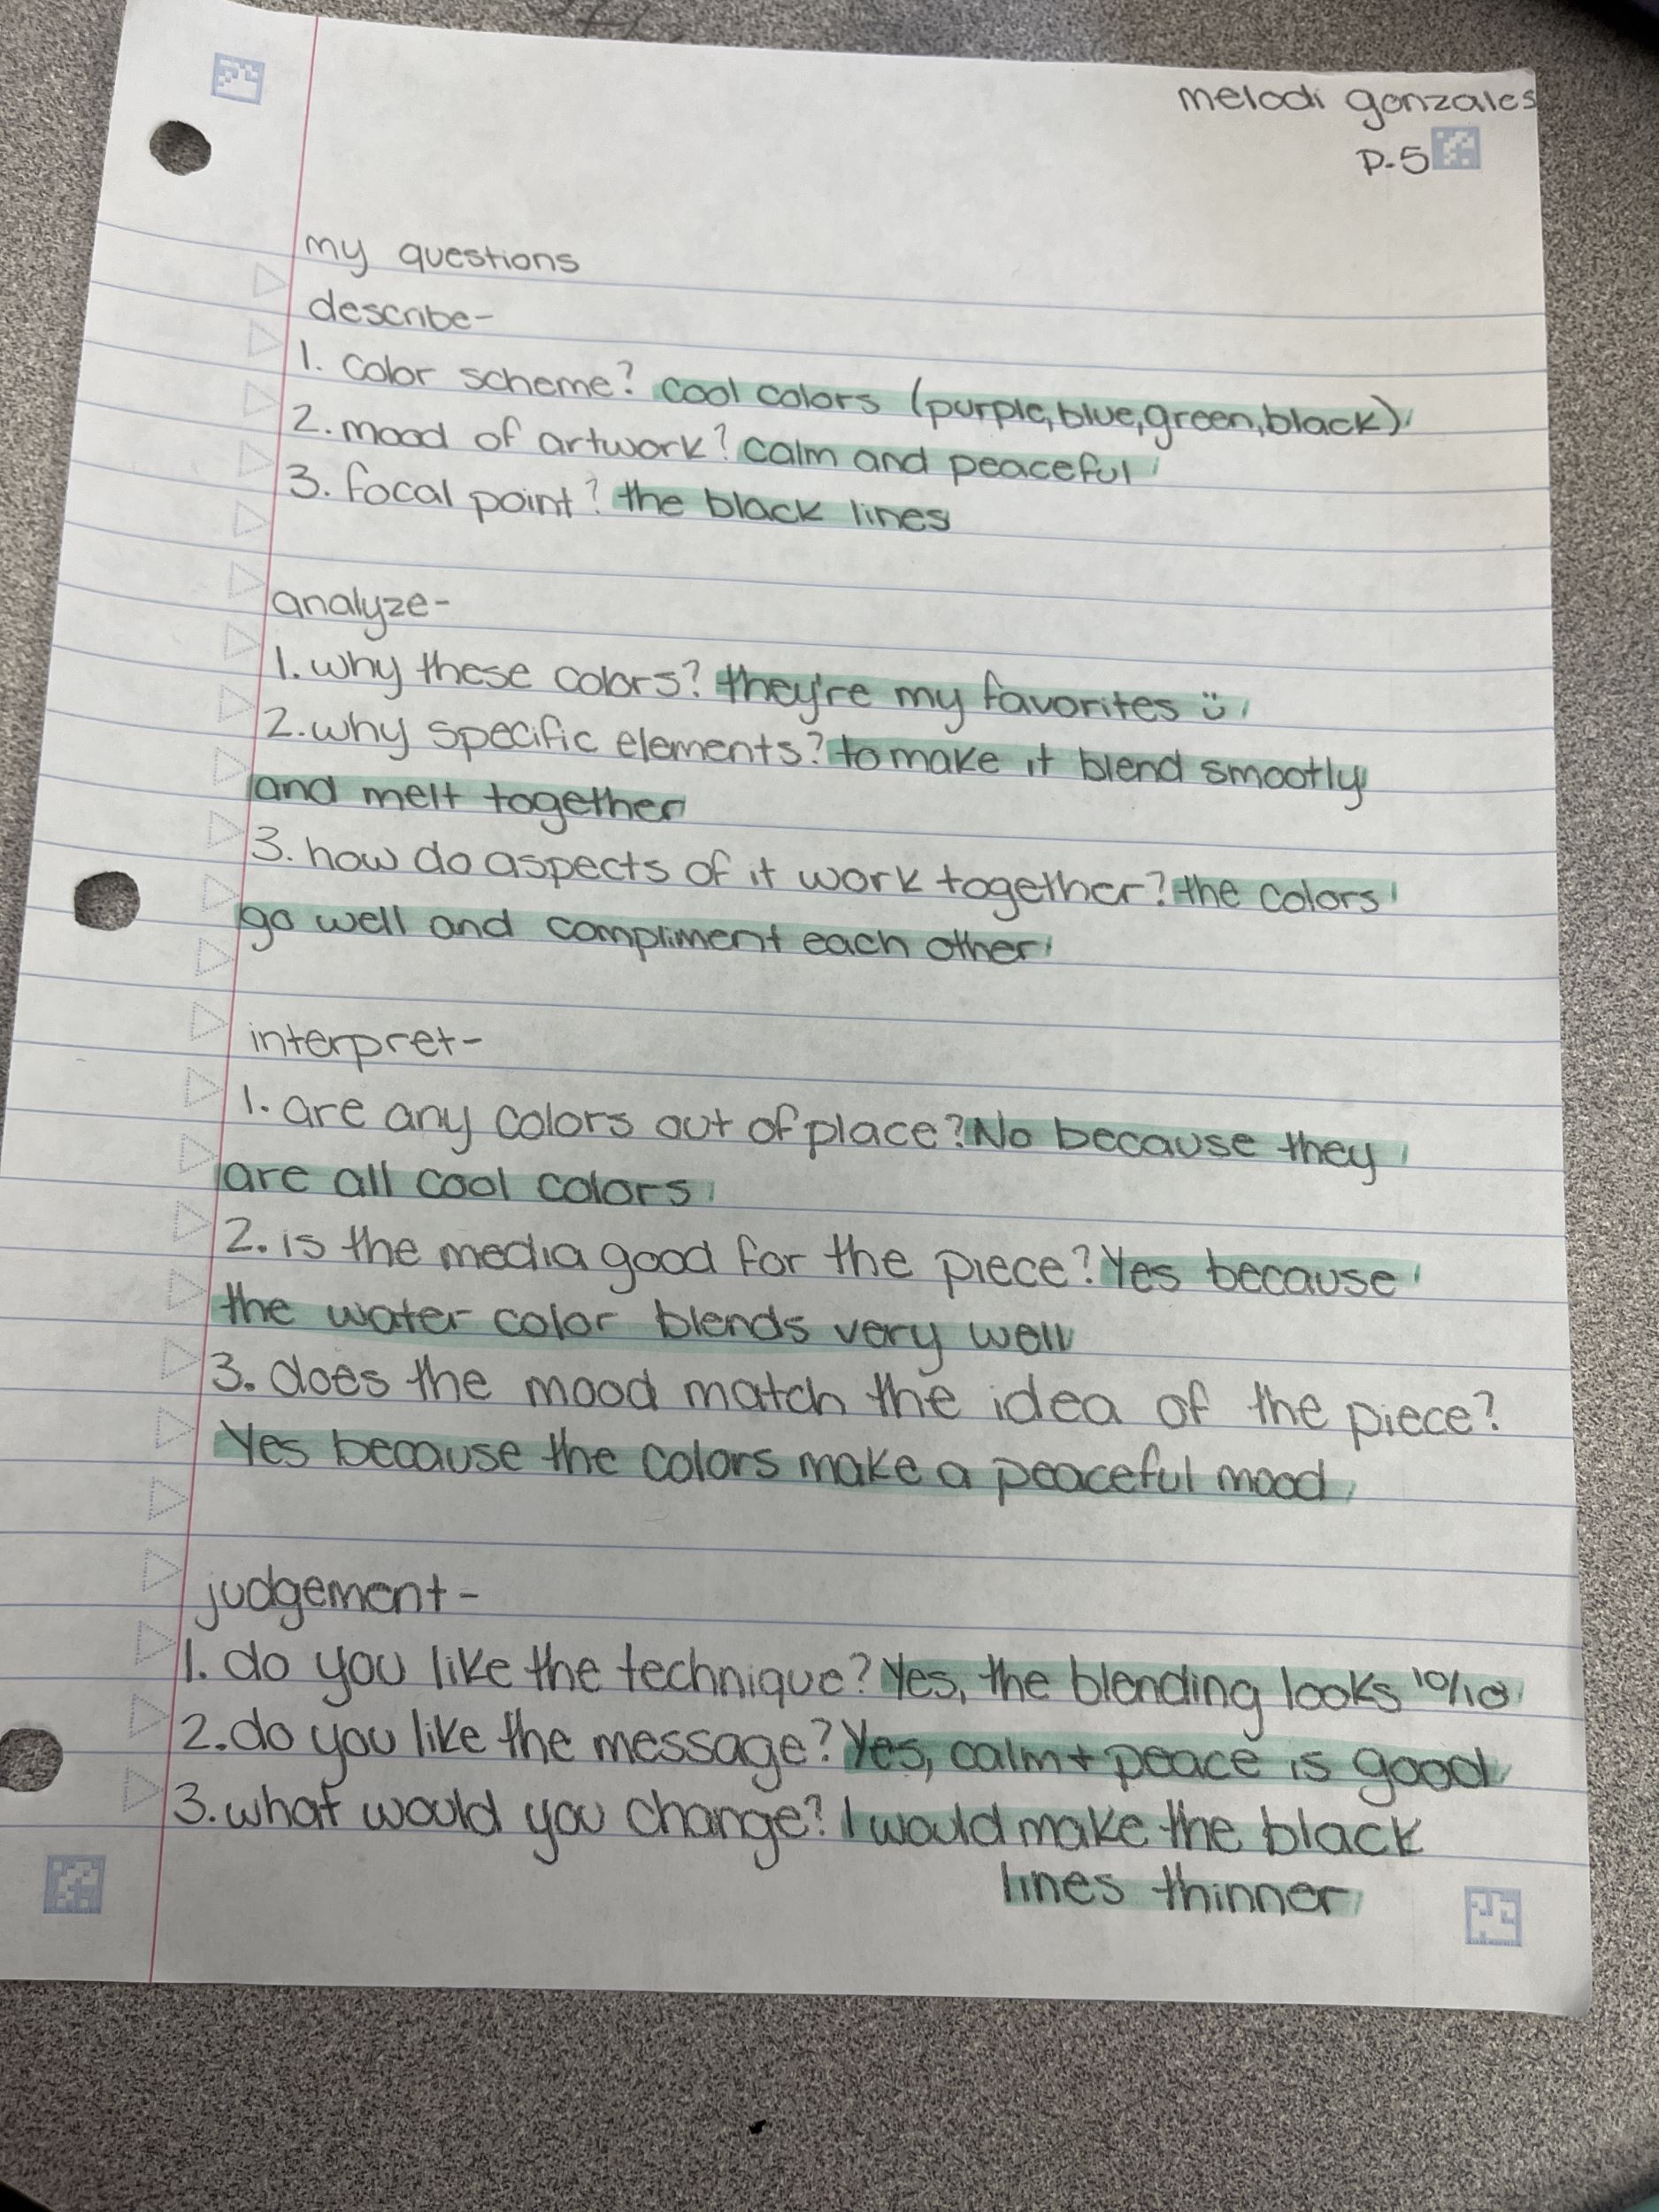 melodi gonzales
P-5
my questions
describe-
1. color scheme? cool colors (purple,blue,green,black)
2. mood of artwork? calm and peaceful
3. focal point? the black lines
analyze-
1. why these colors? they're my favorites :)
2. why specific elements? to make it blend smootly
and melt together
3. how do aspects of it work together? the colors
go well and compliment each other
interpret-
1. are any colors out of place? No because they
are all cool colors
2. is the media good for the piece? Yes because
the water color blends very well
3. does the mood match the idea of the piece?
Yes because the colors make a peaceful mood
judgement-
1. do you like the technique? Yes, the blending looks 10/10
2. do you like the message? Yes, calm + peace is good
3. what would you change? I would make the black
lines thinner